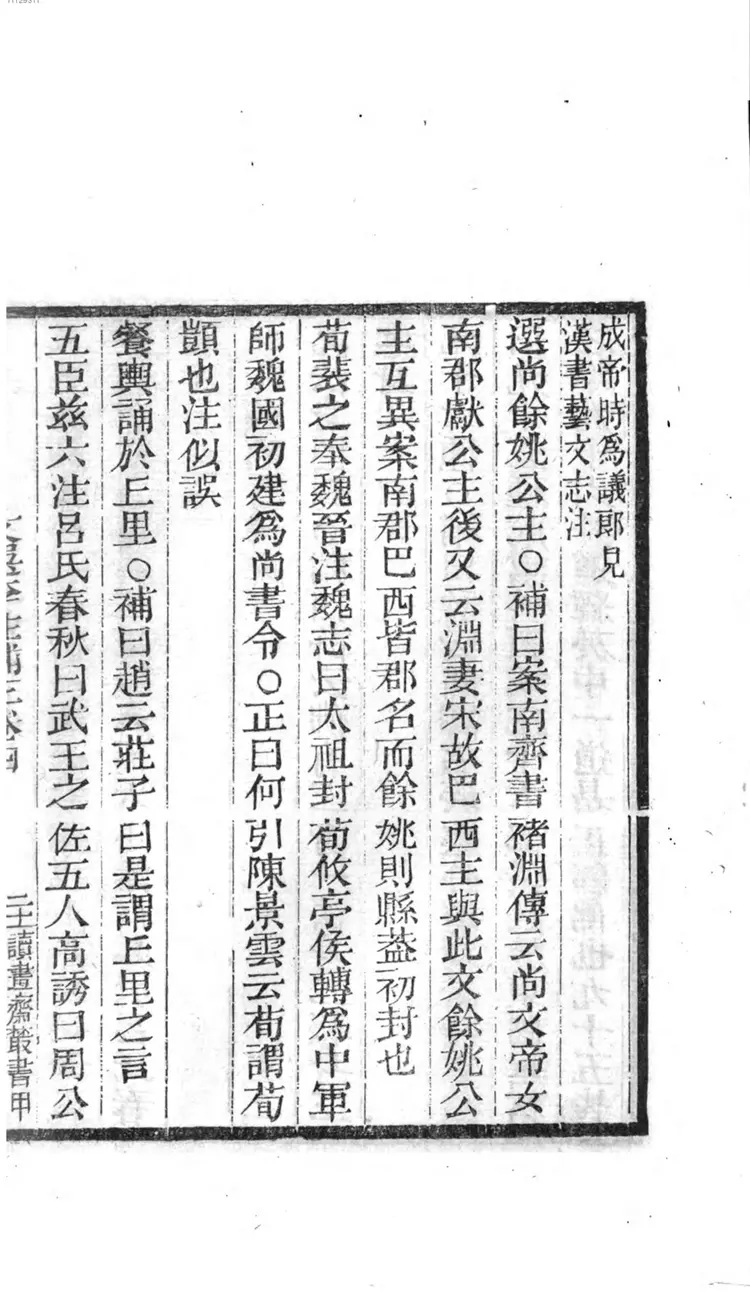 成帝時爲議郞見
漢書藝文志注
選尚餘姚公主○補曰案南齊書褚淵傳云尚文帝女
南郡獻公主後又云淵妻宋故巴西主與此文餘姚公
主互異案南郡巴西皆郡名而餘姚則縣葢初封也
荀裴之奉魏晉注魏志曰太祖封荀攸亭侯轉爲中軍
師魏國初建爲尚書令○正曰何引陳景雲云荀謂荀
顗也注似誤
餐輿誦於丘里○補曰趙云莊子曰是謂丘里之言
五臣茲六注呂氏春秋曰武王之佐五人高誘曰周公
讀畫齋叢書甲